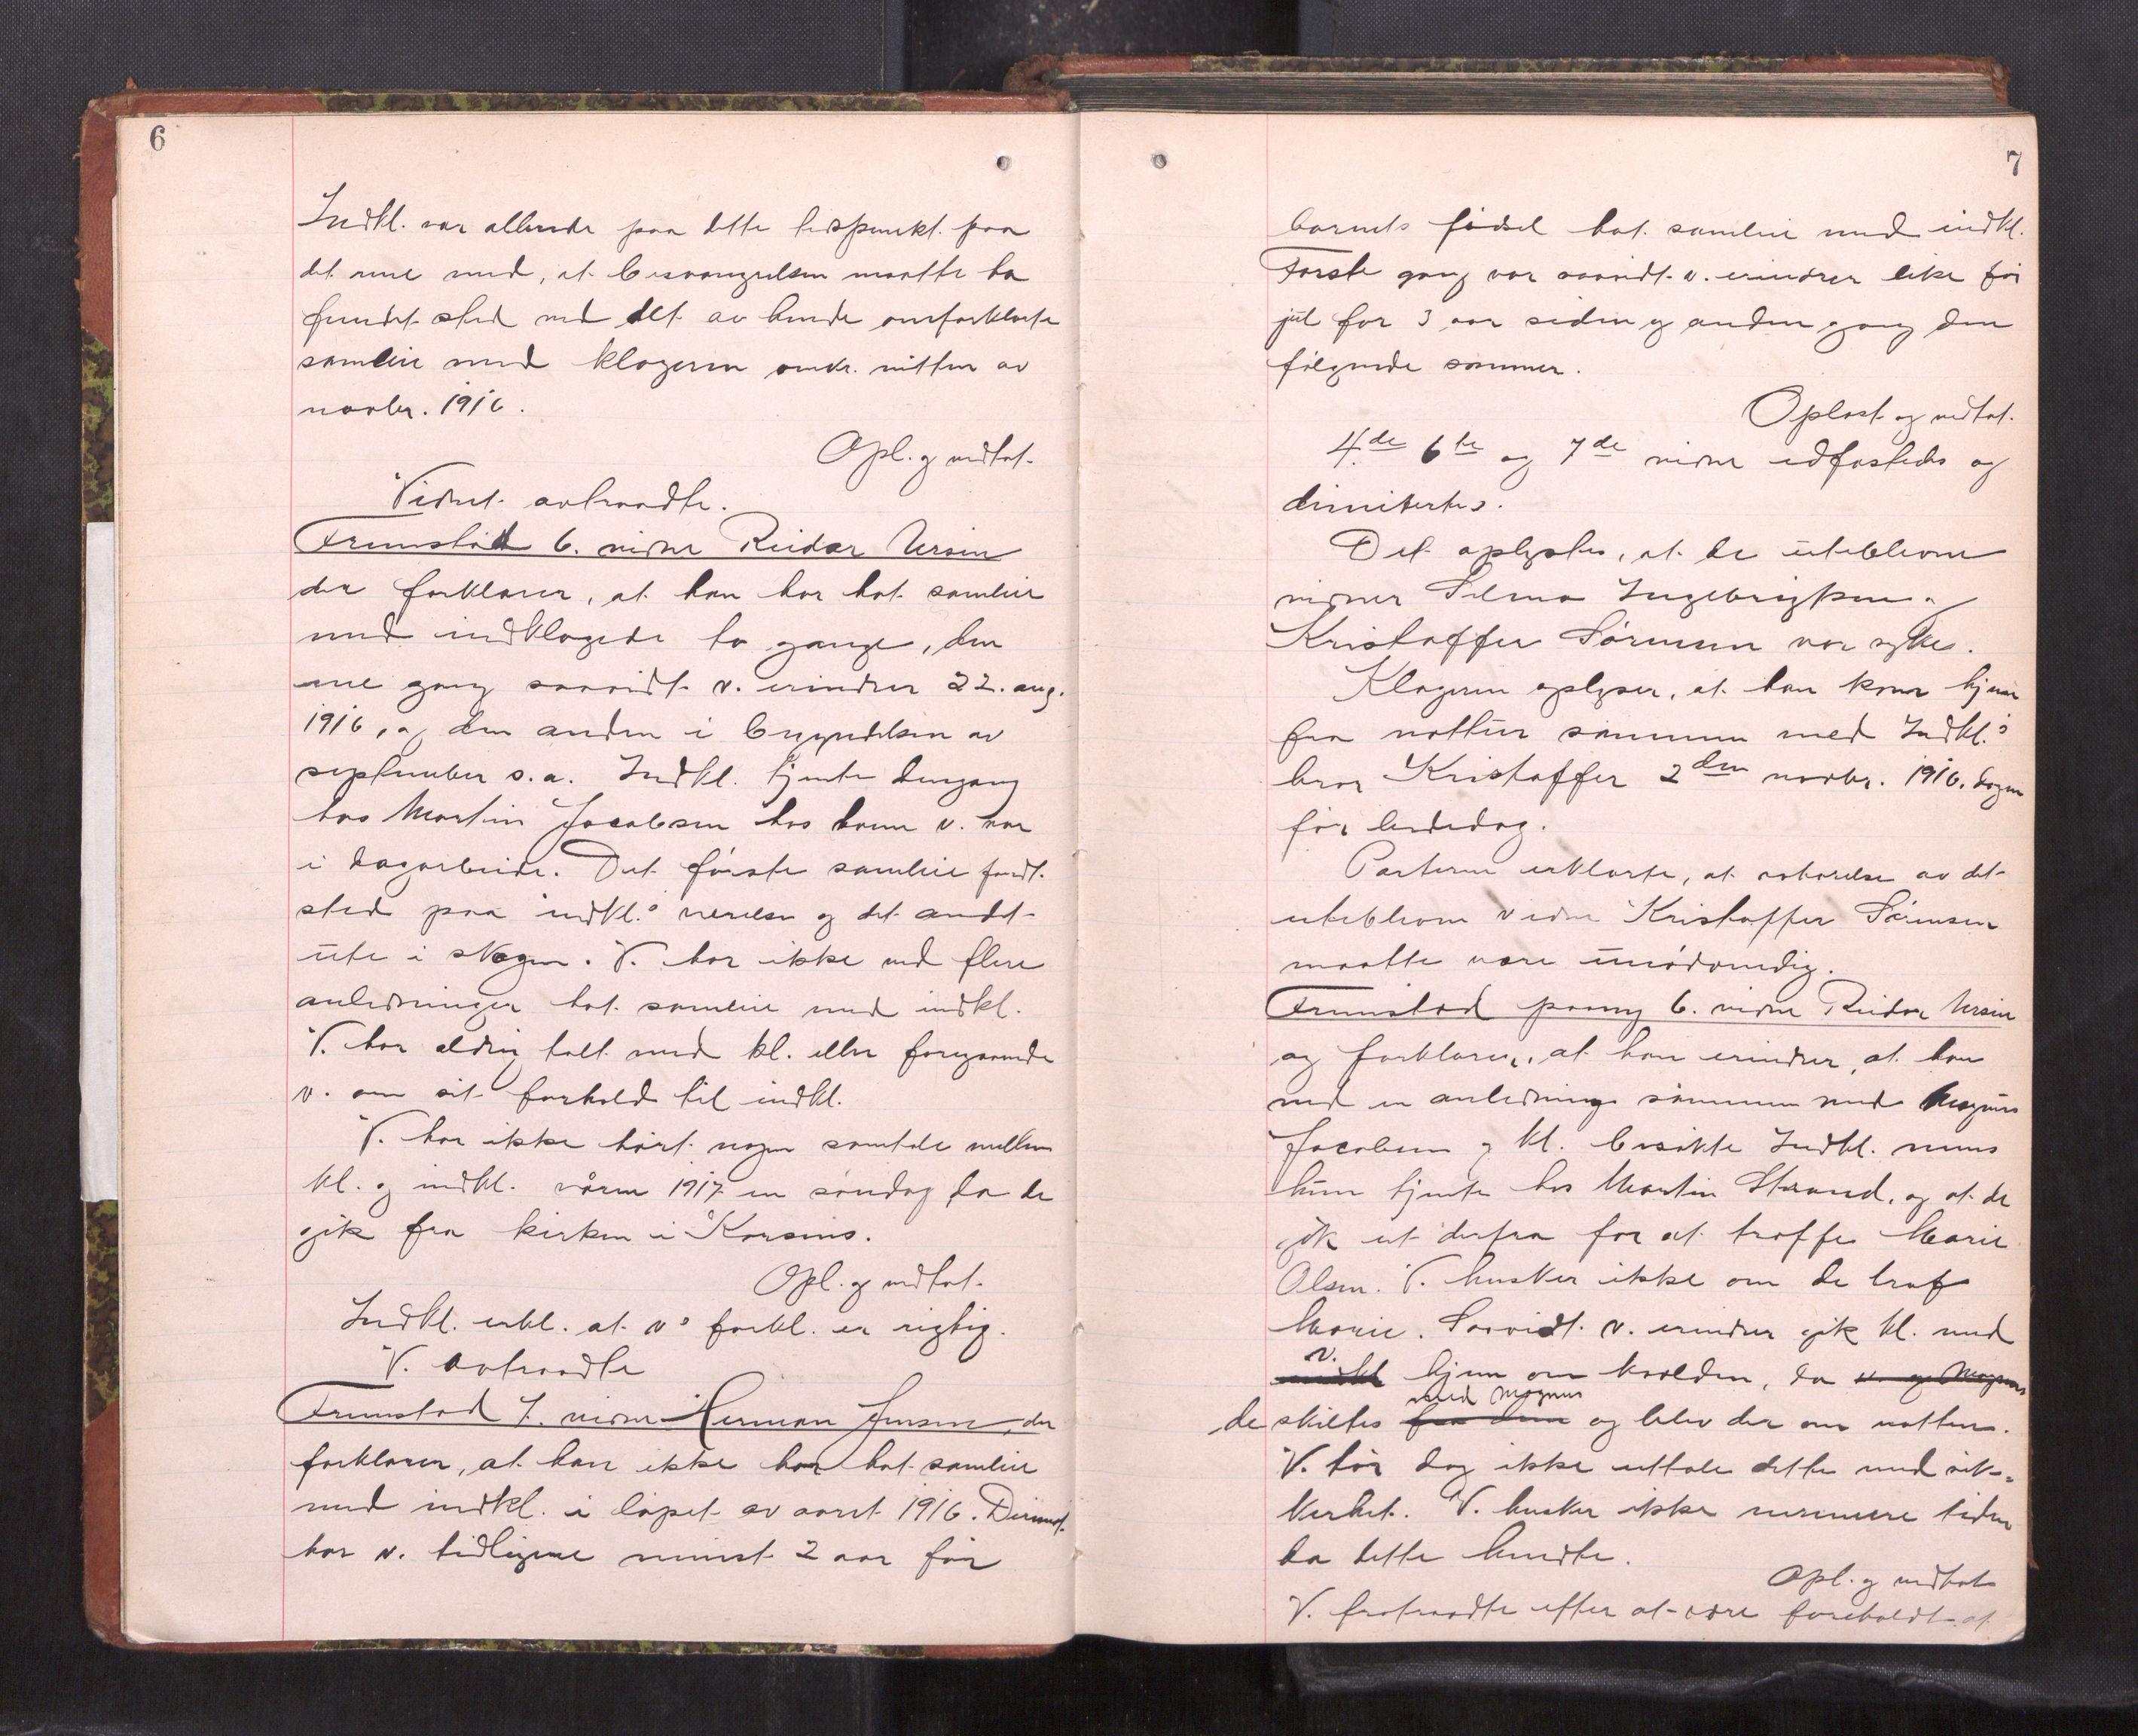 6
Indkl. var allerede paa dette tidspunkt paa
det rene med, at besvangrelsen maatte ha
fundet sted ved det av hende omforklarte
samleie med klageren omkr. midten av
novbr. 1916.
Opl. og vedtat.
Vidnet avtraadte.
Fremstod 6. vidne Reidar Ursin
der forklarer, at han har hat samleie
med indklagede to gange, den
ene gang saavidt v. erindrer 22. aug.
1916, og den anden i begyndelsen av
september s.a. Indkl. tjente dengang
hos Martin Jacobsen hos hvem v. var
i dagarbeide. Det første samleie fandt
sted paa indkl.s værelse og det andet
ute i skogen. V. har ikke ved flere
anledninger hat samleie med indkl.
V. har aldrig talt med kl. eller foregaaende
v. om sit forhold til indkl.
V. har ikke hørt nogen samtale mellem
kl. og indkl. våren 1917 en søndag da de
gik fra kirken i Korsnes.
Opl. og vedtat.
Indkl. erkl. at v.s forkl. er rigtig.
V. avtraadte
Fremstod 7. vidne Herman Jensen, der
forklarer, at han ikke har hat samleie
med indkl. i løpet av aaret 1916. Derimot
har v. tidligere mindst 2 aar før
7
barnets fødsel hat samleie med indkl.
Første gang var saavidt v. erindrer like før
jul for 3 aar siden og anden gang den
følgende sommer.
Oplæst og vedtat.
4.de 6te og 7de vidne edfæstedes og
dimitertes.
Det oplystes, at de uteblevne
vidner Selma Ingebrigtsen og
Kristoffer Sørensen var syke.
Klageren oplyser, at han kom hjem
fra nattur sammen med Indkl.s
bror Kristoffer 2den novbr. 1916, dagen
før bededag.
Parterne erklærte, at avhørelse av det
uteblevne vidne Kristoffer Sørensen
maatte være unødvendig.
Fremstod paany 6. vidne Reidar Ursin
og forklarer, at han erindrer, at han
ved en anledning sammen med Magnus
Jacobsen og kl. besøkte Indkl. mens
hun tjente hos Martin Strand, og at de
gik ut derfra for at træffe Marie
Olsen. V. husker ikke om de traf
Marie. Saavidt v. erindrer gik kl. med
v.
indkl hjem om kvelden, da v. og Magnus
med Magnus
de skiltes fra dem og blev der om natten.
V. tør dog ikke uttale dette med sik-
kerhet. V. husker ikke nærmere tiden
da dette hendte.
Opl. og vedtat
V. fratraadte efter at være foreholdt at